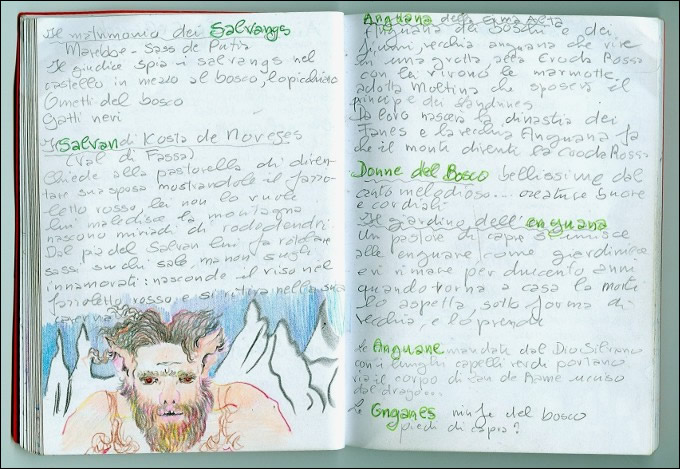 Il matrimonio dei Salvangs
Marebbe - Sass de Putia
Il giudice spia i salvangs nel
castello in mezzo al bosco, lo picchiano
Ometti del bosco
Gatti neri
Il Salvan di Kosta de Moveges
(Val di Fassa)
Chiede alla pastorella di diven-
tare sua sposa mostrandole il fazzo-
letto rosso, lei non lo vuole
lui maledisce la montagna
nascono miriadi di rododendri
Dal pià del Salvan lui fa rotolare
sassi su chi sale, ma non sugli
innamorati: nasconde il viso nel
fazzoletto rosso e si ritira nella sua
caverna
Anguana della Croda Alta
Anguana dei boschi e dei
fiumi, vecchia anguana che vive
in una grotta, alla Croda Rossa
con lei vivono le marmotte,
adotta Moltina che sposerà il
principe dei Landrines
Da loro nascerà la dinastia dei
Fanes e la vecchia Anguana fa
che il monte diventi la Croda Rossa
Donne del Bosco bellissime dal
canto melodioso... creature buone
e cordiali
Il giardino dell'enguana
Un pastore di capre si unisce
alle enguane come giardiniere
e vi rimane per duecento anni
quando torna a casa la morte
lo aspetta sotto forma di
vecchia, e lo prende
Le Anguane mandate dal Dio Silvano
con i lunghi capelli verdi portano
via il corpo di Zan de Rame ucciso
dal drago...
Le Gnganes ninfe del bosco
piedi di capra?